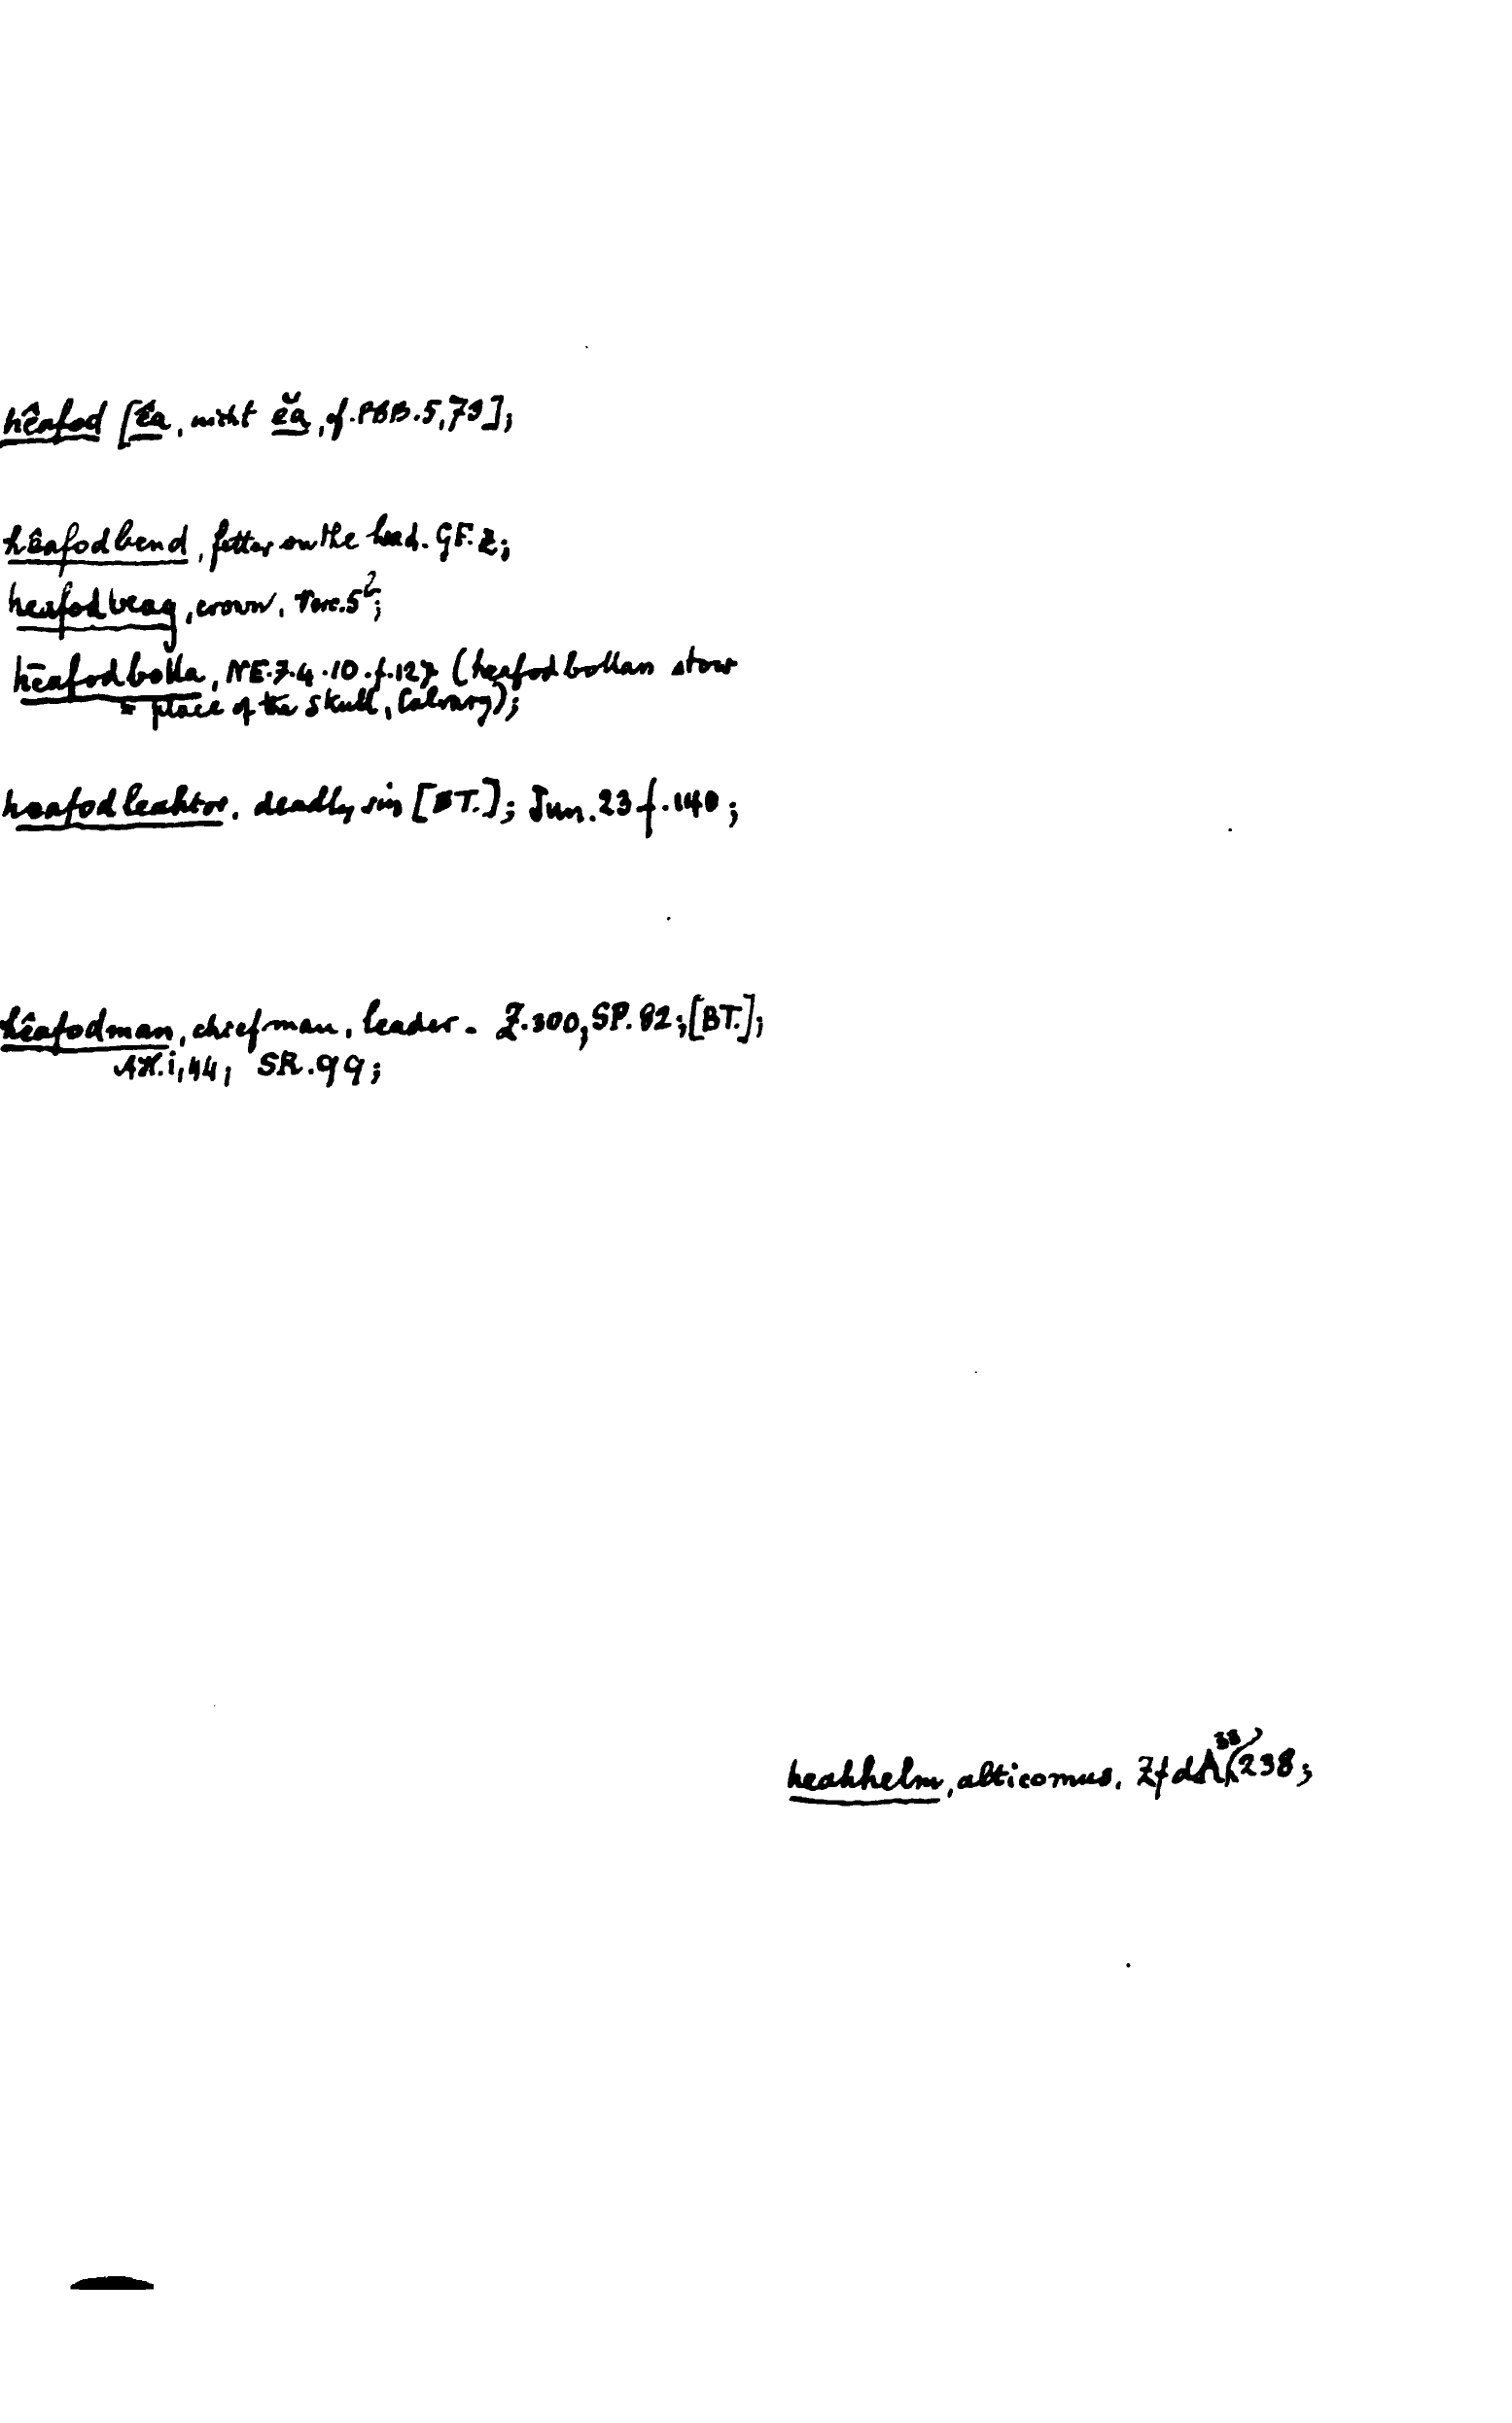 hêafod [êa, nicht ĕă, cf. PBB. 5, 79];
hêafodbend, fetter on the head. GF. 2;
heafodbeag, crown, Verc. 5b;
hēafodbolla, NE. 7. 4. 10. f. 127 (heafodbollan stow
= place of the skull, Calvary);
heafodleahtor, deadly sin [BT.]; Jun. 23 f. 140;
hêafodman, chief man, leader. Z. 300, SP. 82; [BT.];
ÆH. i, 44; SR. 99;
heahhelm, alticomus. ZfdA 33/238;